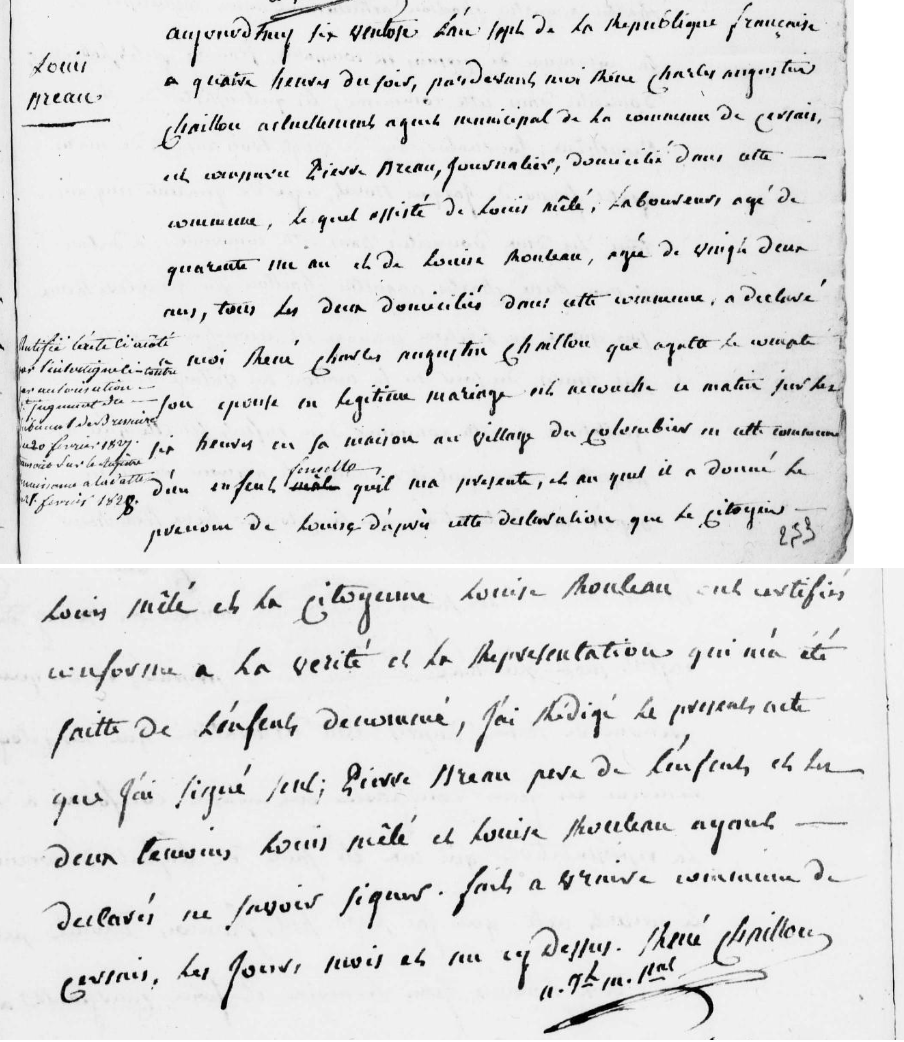 Louis
Breau
aujourd'huy six ventose L'an sept de La Republique françoise
a quatre heures du soir, pardevant moi Réné Charles augustin
Chaillou actuellement agent municipal de La commune de Cersais,
est comparu Pierre Breau, Journalier, domicilié dans cette
commune, Le quel assisté de Louis mêlé, Laboureur agé de
quarente un an et de Louise Rouleau, agée de vingt deux
ans, tous Les deux domiciliés dans cette commune, a declaré
a moi Réné Charles augustin Chaillou que agatte Le comte
son epouse en Legitime mariage est accouché ce matin sur Les
six heures en sa maison au village du Colombier en cette commune
d'un enfent mâle femelle qu'il ma presenté, et au quel il a donné Le
prenom de Louise, d'après cette desclaration que Le Citoyen
253
Rectifié l'acte ci à côté
par l'autorisation
Jugement du
tribunal de Bressuire
du 20 fevrier 1827.
naissance à la datte
fevrier 1828.
Louis mêlé et La Citoyenne Louise Rouleau ont certifiés
conforme a La verité et La Representation qui m'a été
faitte de L'enfent denommé, J'ai Rédigé Le present acte
que J'ai signé seul; Pierre Breau pere de L'enfent et Les
deux temoins Louis mêlé et Louise Rouleau ayant
declarés ne savoir signer. fait a commune de
Cersais, Les Jours mois et an cy Dessus. Réné Chaillou
a.gt m.pal